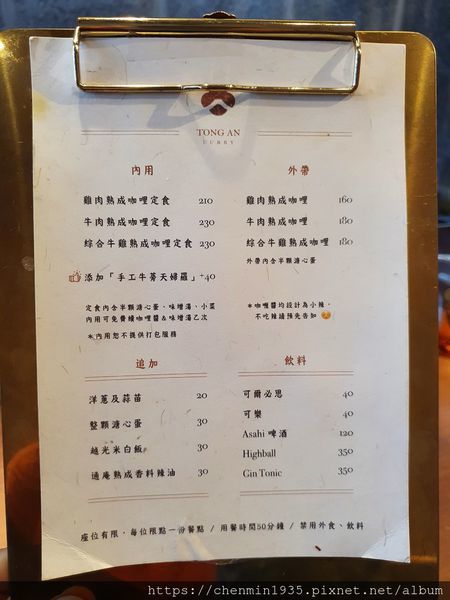 TONG AN
CURRY
內用
雞肉熟成咖哩定食 210
牛肉熟成咖哩定食 230
綜合牛雞熟成咖哩定食 230
添加「手工牛蒡天婦羅」+40
定食內含半顆溏心蛋、味增湯、小菜
內用可免費續咖哩醬&味增湯乙次
*內用恕不提供打包服務
外帶
雞肉熟成咖哩 160
牛肉熟成咖哩 180
綜合牛雞熟成咖哩 180
外帶內含半顆溏心蛋
*咖哩醬均設計為小辣,
不吃辣請預先告知
追加
洋蔥及蒜苗 20
整顆溏心蛋 30
越光米白飯 30
通庵熟成香料辣油 30
飲料
可爾必思 40
可樂 40
Asahi 啤酒 120
Highball 350
Gin Tonic 350
座位有限,每位限點一份餐點 / 用餐時間50分鐘 / 禁用外食、飲料
https://chenmin1935.pixnet.net/album